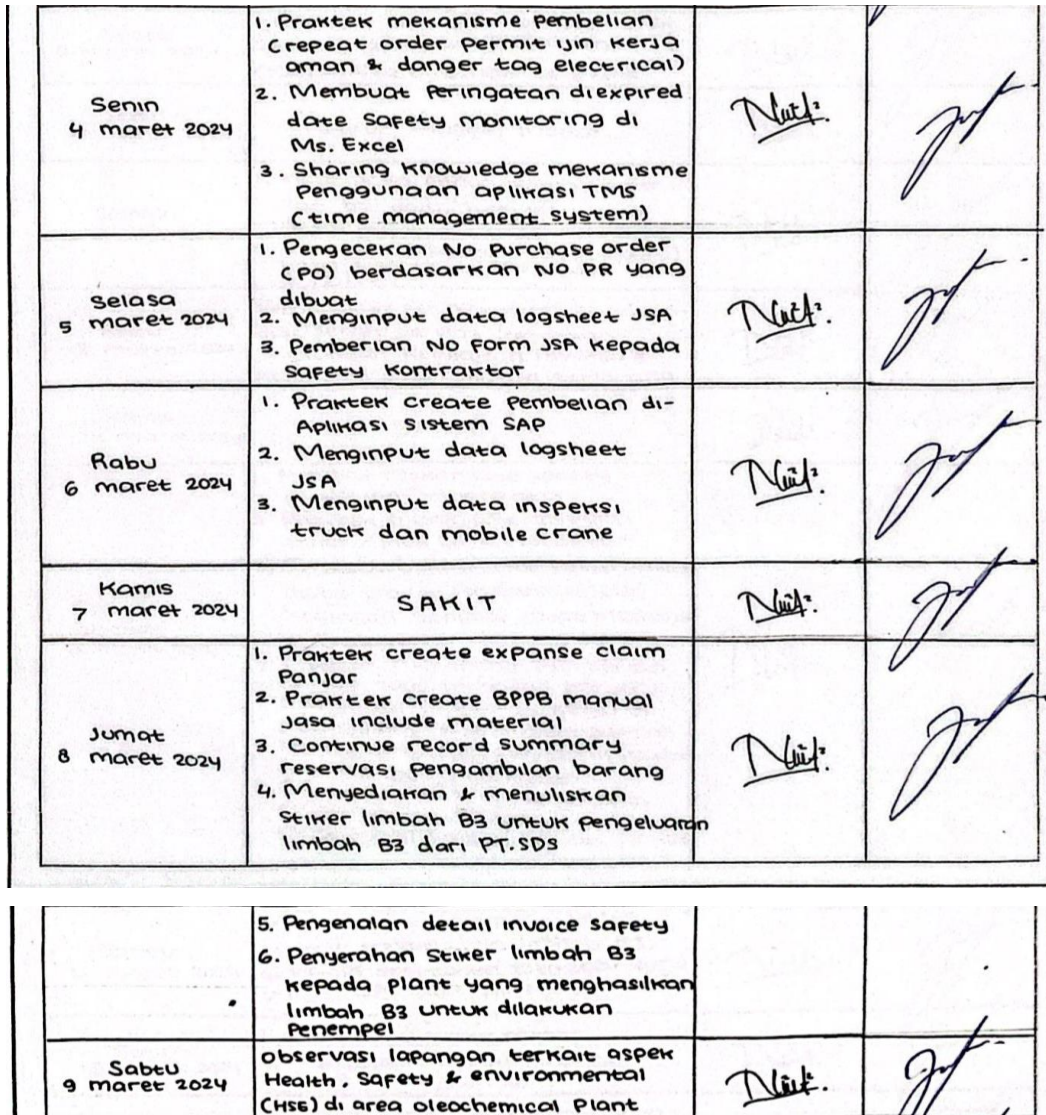 Senin
4 maret 2024
1. Praktek mekanisme pembelian
(repeat order permit ijin kerja
aman & danger tag electrical)
2. Membuat Peringatan diexpired
date Safety monitoring di
Ms. Excel
3. Sharing knowledge mekanisme
Penggunaan aplikasi TMS
(time management system)
Selasa
5 maret 2024
1. Pengecekan No Purchase order
(PO) berdasarkan No PR yang
dibuat
2. Menginput data logsheet JSA
3. Pemberian No Form JSA kepada
Safety Kontraktor
Rabu
6 maret 2024
1. Praktek Create Pembelian di-
Aplikasi Sistem SAP
2. Menginput data logsheet
JSA
3. Menginput data inspeksi
truck dan mobile crane
Kamis
7 maret 2024
SAKIT
Jumat
8 maret 2024
1. Praktek create expanse claim
Panjar
2. Praktek create BPPB manual
Jasa include material
3. Continue record summary
reservasi pengambilan barang
4. Menyediakan & menuliskan
Stiker limbah B3 untuk pengeluaran
limbah B3 dari PT.SDS
5. Pengenalan detail invoice Safety
6. Penyerahan Stiker limbah B3
kepada plant yang menghasilkan
limbah B3 untuk dilakukan
Penempel
Sabtu
9 maret 2024
observasi lapangan terkait aspek
Health, Safety & environmental
(HSE) di area oleochemical Plant